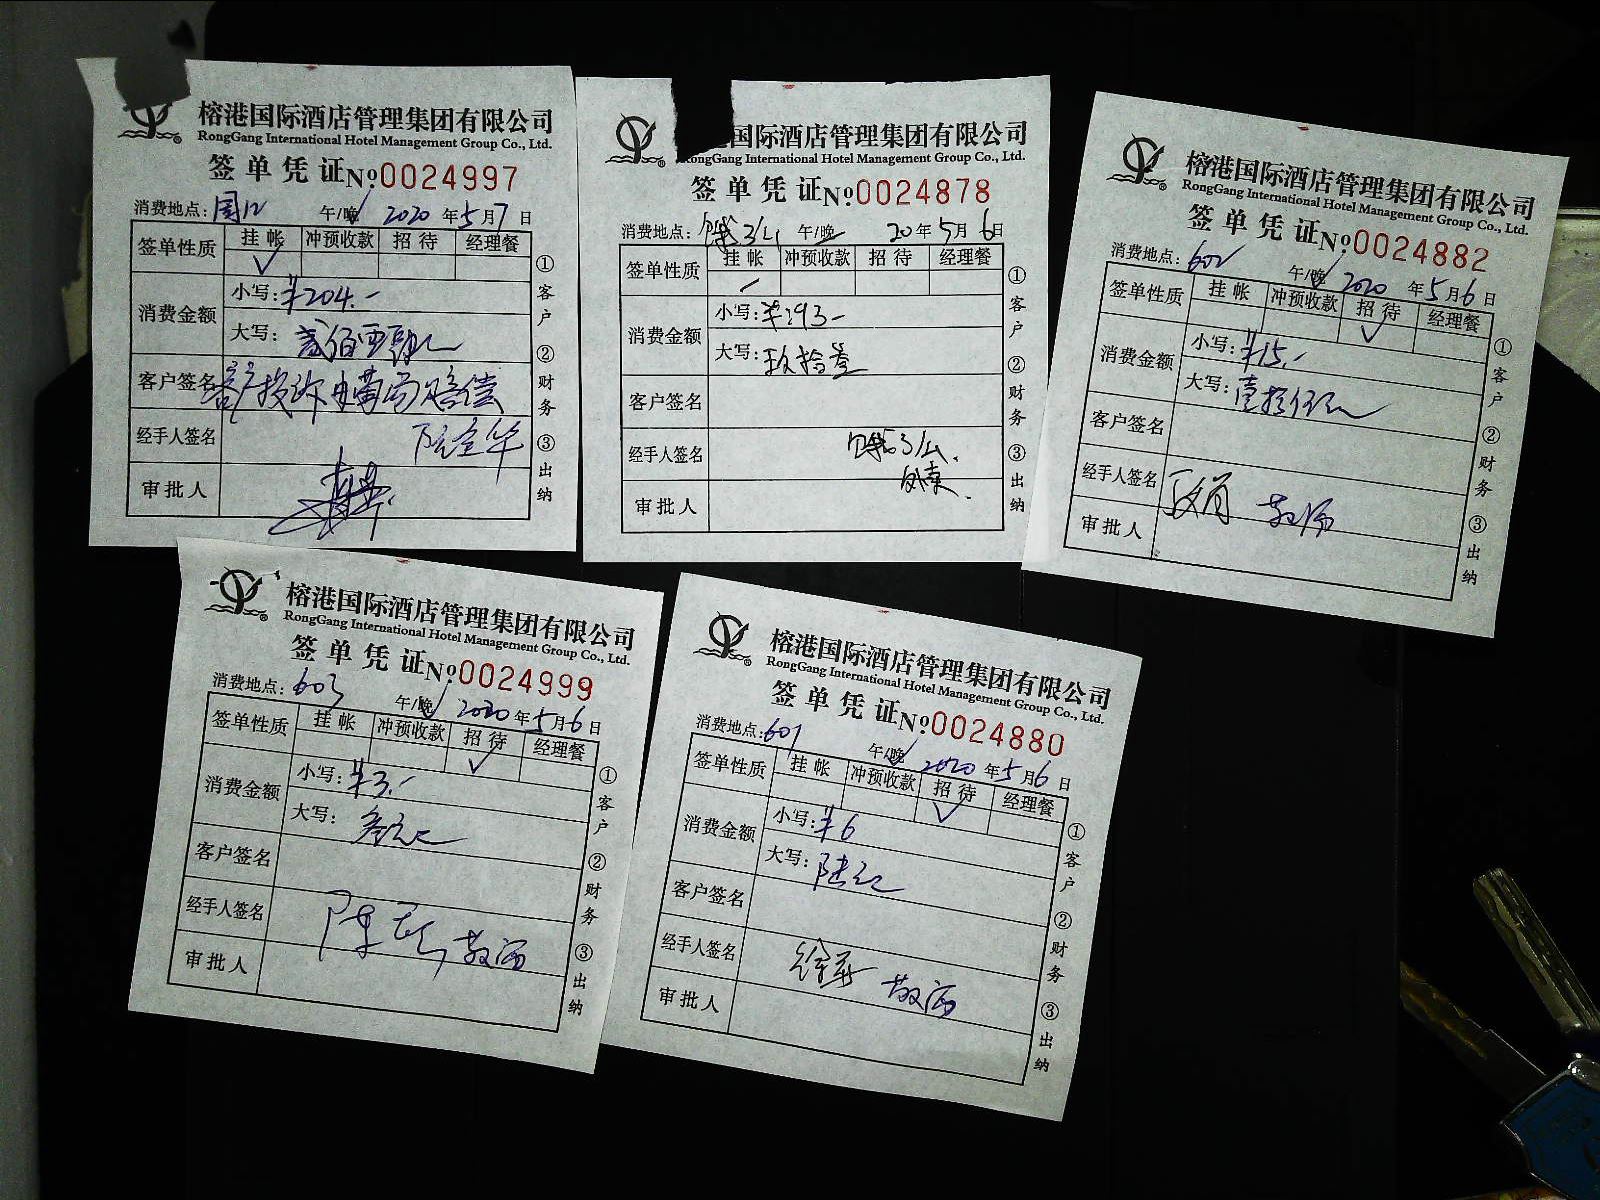 榕港国际酒店管理集团有限公司
RongGang International Hotel Management Group Co., Ltd.
签单凭证 No 0024997
消费地点: 午/晚 2020年5月7日
签单性质 挂帐 冲预收款 招待 经理餐
消费金额 小写: ¥204.-
大写: 贰佰
客户签名 客户投诉由 赔偿
经手人签名
审批人
①客户 ②财务 ③出纳
国际酒店管理集团有限公司
International Hotel Management Group Co., Ltd.
签单凭证 No 0024878
消费地点: 午/晚 20年5月6日
签单性质 挂帐 冲预收款 招待 经理餐
消费金额 小写: 93-
大写: 玖拾叁
客户签名
经手人签名
审批人
①客户 ②财务 ③出纳
榕港国际酒店管理集团有限公司
RongGang International Hotel Management Group Co., Ltd.
签单凭证 No 0024882
消费地点: 602 午/晚 2020年5月6日
签单性质 挂帐 冲预收款 招待 经理餐
消费金额 小写: ¥15.-
大写: 壹拾伍元
客户签名
经手人签名
审批人
①客户 ②财务 ③出纳
榕港国际酒店管理集团有限公司
RongGang International Hotel Management Group Co., Ltd.
签单凭证 No 0024999
消费地点: 603 午/晚 2020年5月6日
签单性质 挂帐 冲预收款 招待 经理餐
消费金额 小写: ¥3.-
大写: 叁元
客户签名
经手人签名 敬酒
审批人
①客户 ②财务 ③出纳
榕港国际酒店管理集团有限公司
RongGang International Hotel Management Group Co., Ltd.
签单凭证 No 0024880
消费地点: 601 午/晚 2020年5月6日
签单性质 挂帐 冲预收款 招待 经理餐
消费金额 小写: ¥6
大写: 陆元
客户签名
经手人签名 敬酒
审批人
①客户 ②财务 ③出纳